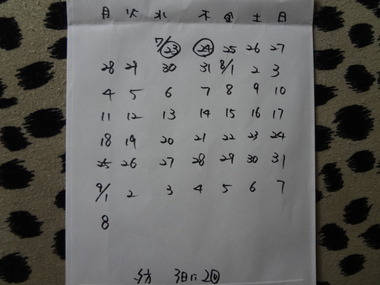 月 火 水 木 金 土 日
7/23 24 25 26 27
28 29 30 31 8/1 2 3
4 5 6 7 8 9 10
11 12 13 14 15 16 17
18 19 20 21 22 23 24
25 26 27 28 29 30 31
9/1 2 3 4 5 6 7
8
3日に2回